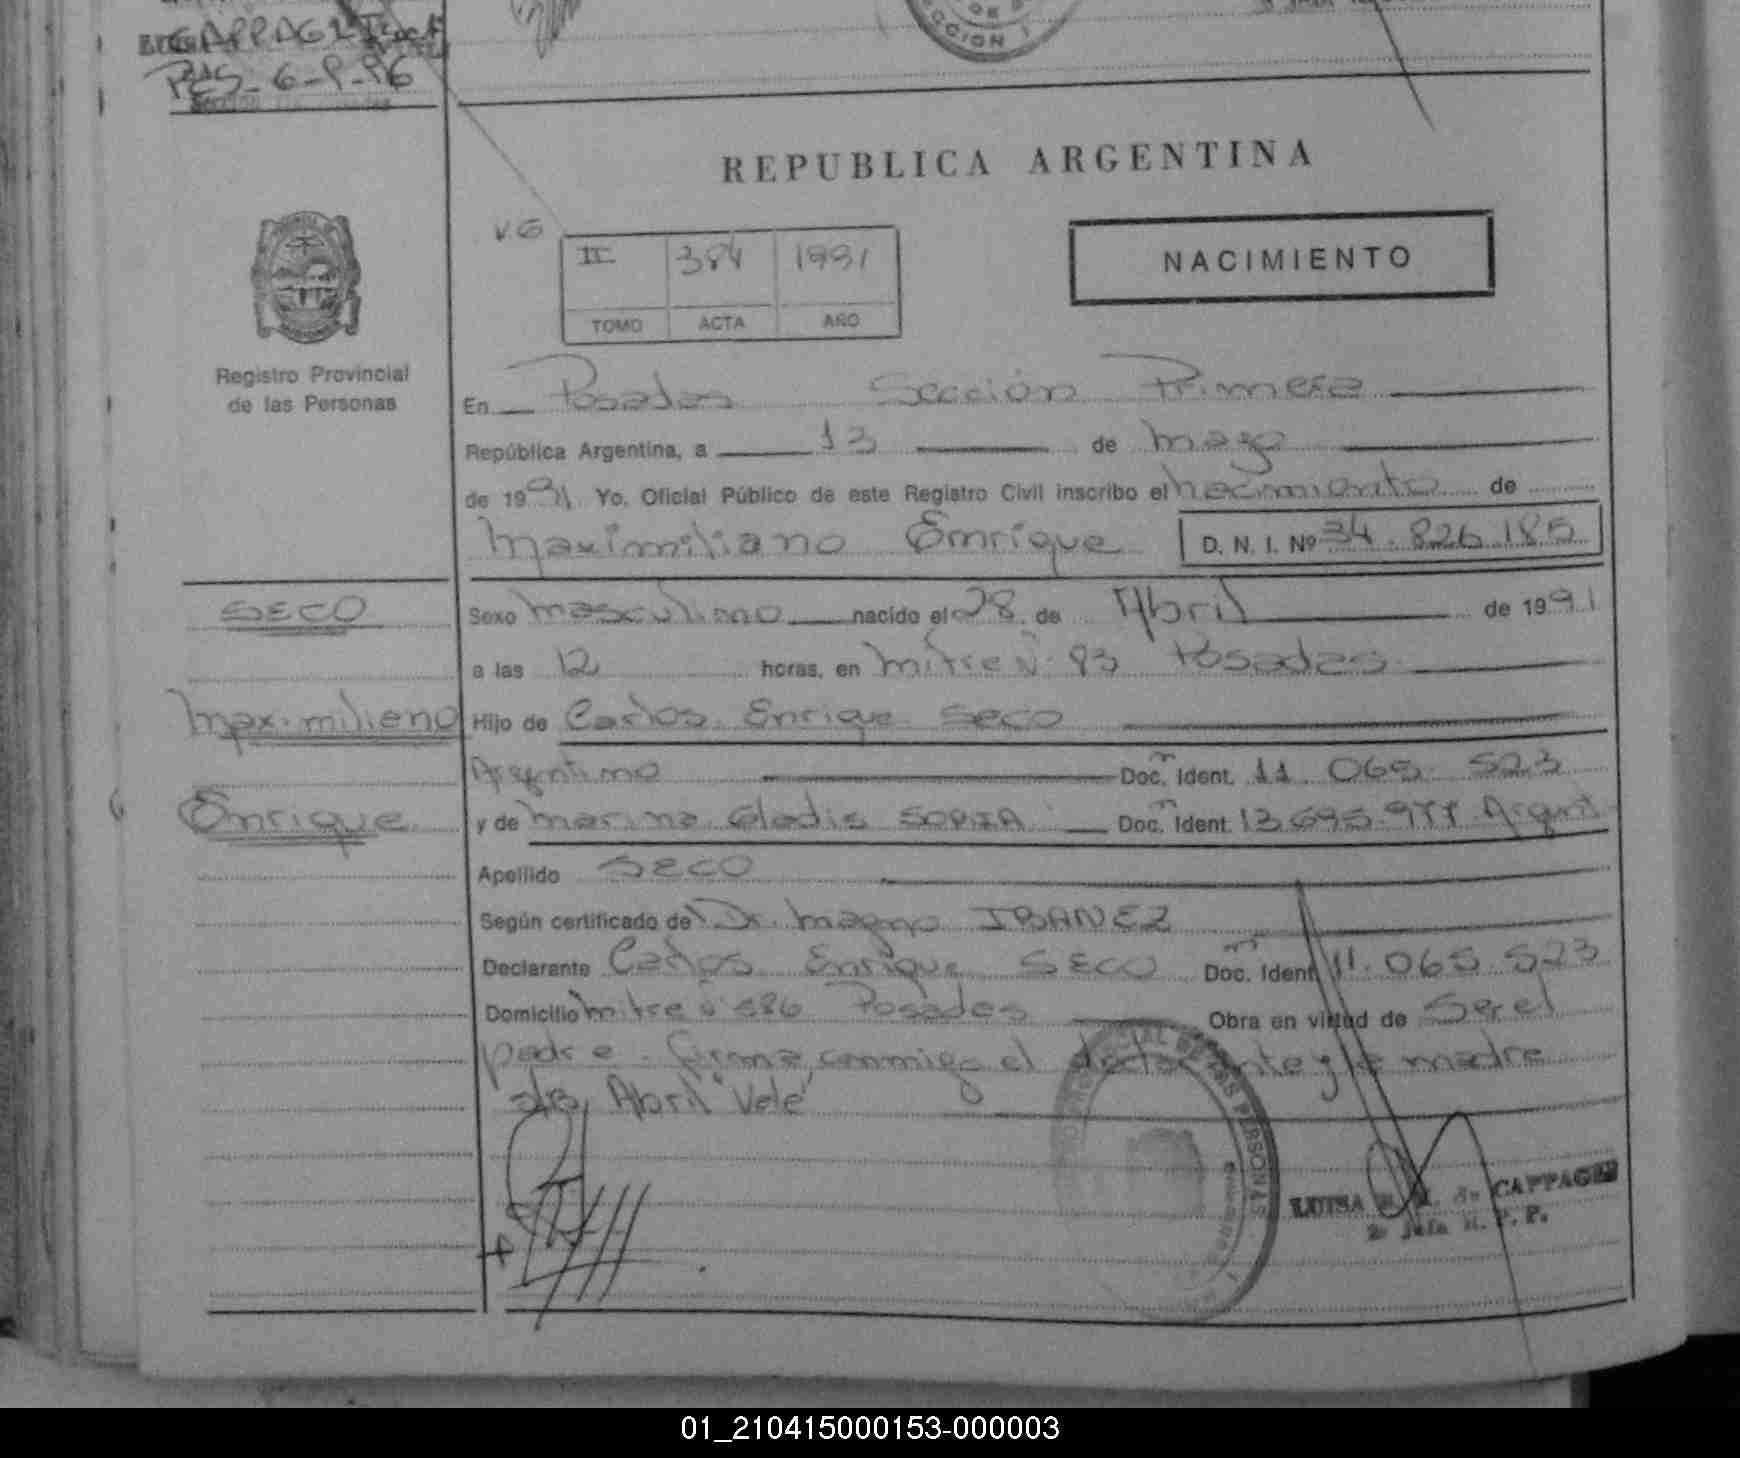 CCION 1
PDS_6-9-96
REPUBLICA ARGENTINA
V.G
II 384 1991
TOMO ACTA AÑO
NACIMIENTO
Registro Provincial
de las Personas
En Posadas Sección Primera
República Argentina, a 13 de mayo
de 1991 Yo, Oficial Público de este Registro Civil inscribo el nacimiento de
Maximiliano Enrique D. N. I. Nº 34.826.185
SECO
Sexo masculino nacido el 28 de Abril de 1991
a las 12 horas, en mitre Nº 83 Posadas
Maximiliano
Hijo de Carlos Enrique Seco
Argentino Doc. Ident. 11 065 523
Enrique
y de Marina Gladis SORIA Doc. Ident. 13.695.977 Argent
Apellido SECO
Según certificado del Dr. Magno IBAÑEZ
Declarante Carlos Enrique SECO Doc. Ident. 11.065 523
Domicilio mitre Nº 586 Posadas Obra en virtud de Ser el
padre. firma conmigo el declarante y la madre
Abril "Vale"
REGISTRO PROVINCIAL DE LAS PERSONAS
LUISA de CAPPAGLI
2º Jefa R. P. P.
01_210415000153-000003